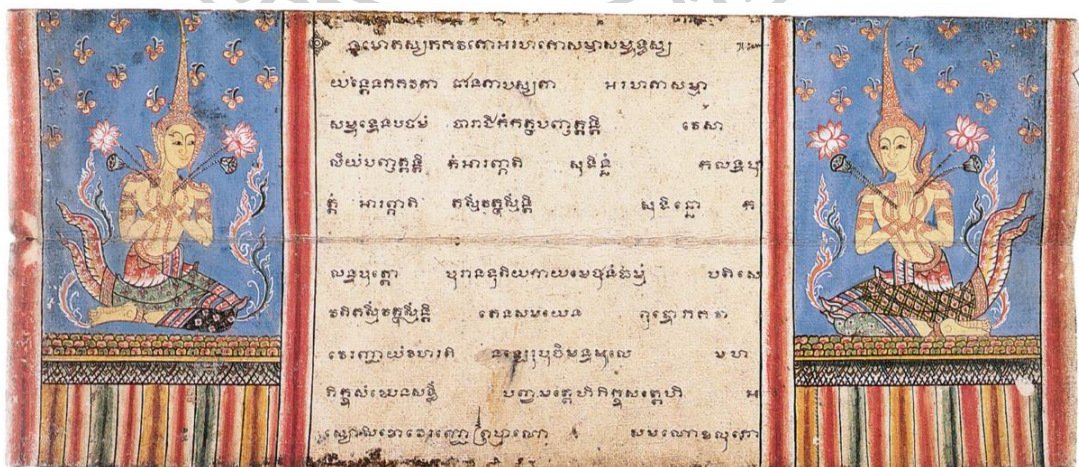 នមោតស្សភគវតោអរហតោសម្មាសម្ពុទ្ធស្ស
យន្តេនភគវតា ជានតាបស្សតា អរហតាសម្មា
សម្ពុទ្ធេនបឋមំ បារាជិកំកត្ថបញ្ញត្តន្តិ វេសា
លិយំបញ្ញត្តន្តិ កំអារព្ភាតិ សុទិន្នំ កលន្ទបុ
ត្តំ អារព្ភាតិ កស្មិំវត្ថុស្មិន្តិ សុទិន្នោ ក
លន្ទបុត្តោ បុរានទុតិយិកាយមេថុនំធម្មំ បតិសេ
វតិតស្មិំវត្ថុស្មិន្តិ តេនសមយេន ពុទ្ធោភគវា
វេរញ្ជាយំវិហរតិ នឡេរុបុចិមន្ទមូលេ មហ
ភិក្ខុសំឃេនសទ្ធិំ បញ្ចមត្តេហិភិក្ខុសតេហិ អ
ស្សោសិខោវេរញ្ជោព្រាហ្មណោ សមណោខលុភោ